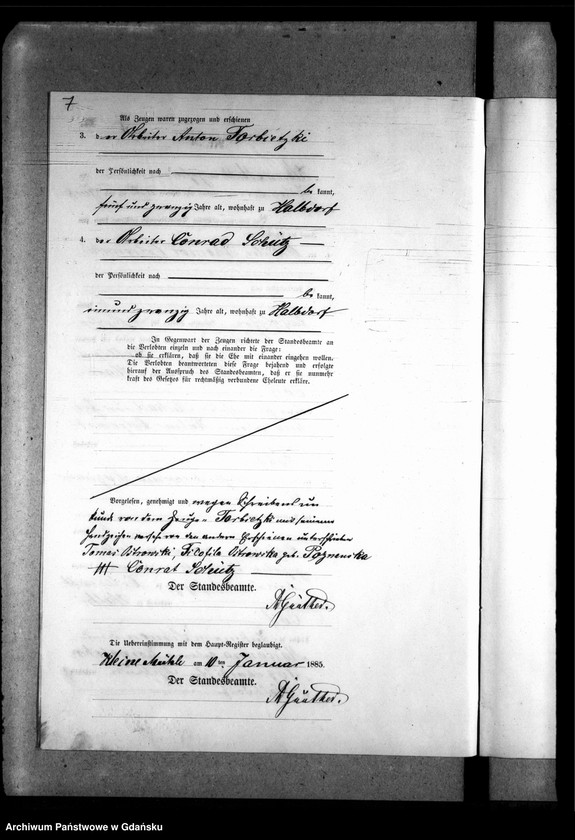 7
Als Zeugen waren zugezogen und erschienen
3. der Arbeiter Anton Torbietzki
der Persönlichkeit nach
be kannt,
fünf und zwanzig Jahre alt, wohnhaft zu Halbdorf
4. der Arbeiter Conrad Schütz
der Persönlichkeit nach
be kannt,
einundzwanzig Jahre alt, wohnhaft zu Halbdorf
In Gegenwart der Zeugen richtete der Standesbeamte an
die Verlobten einzeln und nach einander die Frage:
ob sie erklären, daß sie die Ehe mit einander eingehen wollen.
Die Verlobten beantworteten diese Frage bejahend und erfolgte
hierauf der Ausspruch des Standesbeamten, daß er sie nunmehr
kraft des Gesetzes für rechtmäßig verbundene Eheleute erkläre.
Vorgelesen, genehmigt und wegen Schreibens un
kunde von dem Zeugen Torbietzki mit seinem
Handzeichen versehen von den andern Erschienenen unterschrieben
Tomas Ostrowski, Teofila Ostrowska geb. Poznanska
+++ Conrat Schütz
Der Standesbeamte.
Günther.
Die Uebereinstimmung mit dem Haupt-Register beglaubigt.
Kleine Mühle am 10 ten Januar 1885.
Der Standesbeamte.
Günther.
Archiwum Państwowe w Gdańsku